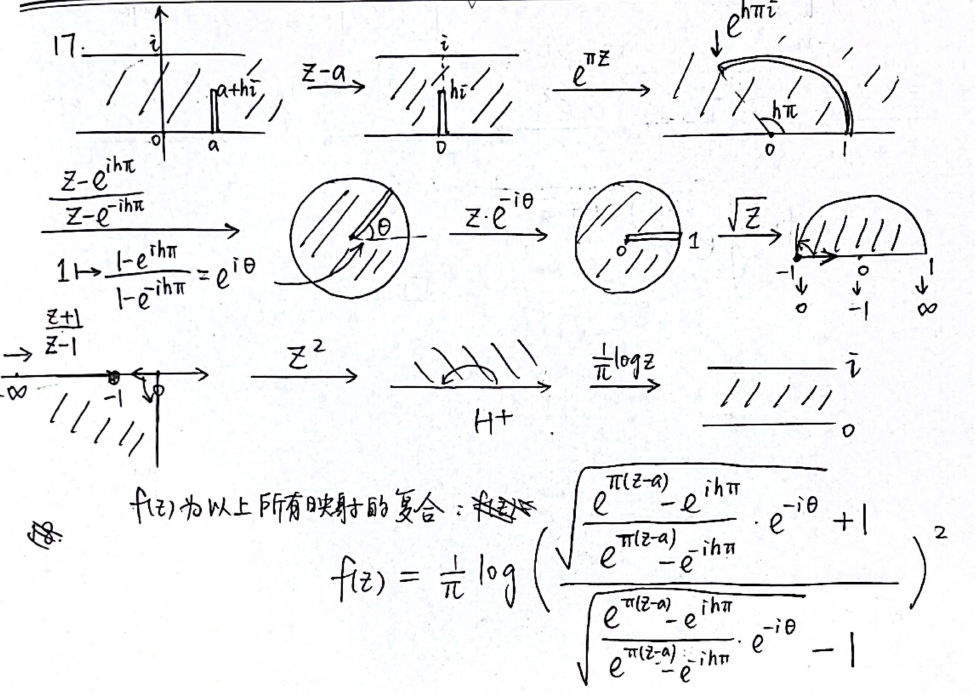 17.
i
a+hi
0
a
z-a
i
hi
0
e^{πz}
e^{hπi}
hπ
0
1
\frac{z-e^{ihπ}}{z-e^{-ihπ}}
1↦\frac{1-e^{ihπ}}{1-e^{-ihπ}}=e^{iθ}
θ
z·e^{-iθ}
0
1
√z
-1 0 1
↓ ↓ ↓
0 -1 ∞
\frac{z+1}{z-1}
-∞ -1 0
z^2
H+
\frac{1}{π}log z
i
0
f(z)为以上所有映射的复合:
f(z) = \frac{1}{π} log \left( \frac{\sqrt{\frac{e^{π(z-a)}-e^{ihπ}}{e^{π(z-a)}-e^{-ihπ}}·e^{-iθ}}+1}{\sqrt{\frac{e^{π(z-a)}-e^{ihπ}}{e^{π(z-a)}-e^{-ihπ}}·e^{-iθ}}-1} \right)^2